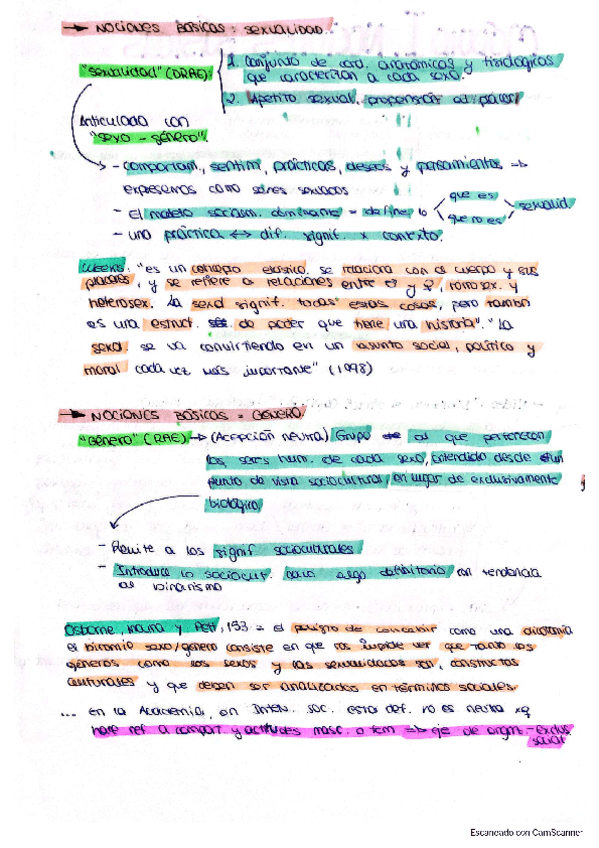 → NOCIONES BÁSICAS: SEXUALIDAD.
"sexualidad" (DRAE)
1. Conjunto de cond. anatómicas y fisiológicas
que caracterizan a cada sexo.
2. Apetito sexual, propensión al placer
Articulada con
"sexo - género".
- comportam., sentim, prácticas, deseos y pensamientos =>
expresemos como seres sexuados
- El modelo socialm. dominante = define lo
que es
que no es
sexualid.
- una práctica <-> dif. signif. x contexto.
Weeks: "es un concepto elástico. se relaciona con el cuerpo y sus
placeres, y se refiere a relaciones entre ♂ y ♀, homosex. y
heterosex. La sexd signif. todas estas cosas, pero también
es una estruct. de poder que tiene una historia". "La
sexd. se va convirtiendo en un asunto social, político y
moral cada vez más importante" (1998)
→ NOCIONES BÁSICAS = GÉNERO.
"Género" (RAE) → (Acepción neutra) Grupo al que pertenecen
los seres hum. de cada sexo, entendido desde un
punto de vista sociocultural, en lugar de exclusivamente
biológico,
- Remite a los signif. socioculturales.
- Introduce lo sociocult. como algo definitorio con tendencia
al binarismo
Osborne, y Petit, = el peligro de concebir como una dicotomía
el binomio sexo/género consiste en que nos impide ver que tanto los
géneros como los sexos y las sexualidades son, constructos
culturales y que deben ser analizados en términos sociales.
... en la Academia, en Inten. soc. esta def. no es neutra xq
hace ref. a comport. y actitudes masc. o fem => eje de orgnt. - exclus.
social
Escaneado con CamScanner